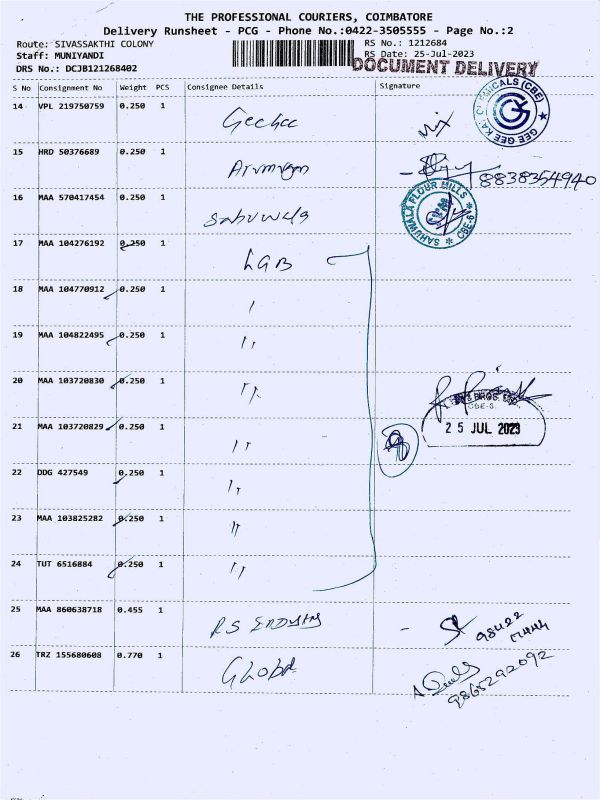 THE PROFESSIONAL COURIERS, COIMBATORE
Delivery Runsheet - PCG - Phone No.:0422-3505555 - Page No.:2
Route: SIVASSAKTHI COLONY RS No.: 1212684
Staff: MUNIYANDI RS Date: 25-Jul-2023
DRS No.: DCJB121268402 DOCUMENT DELIVERY
S No Consignment No Weight PCS Consignee Details Signature
14 VPL 219750759 0.250 1 GEE GEE KAY CHEMICALS (CBE)
15 HRD 50376689 0.250 1 Arumugam 8838354940
16 MAA 570417454 0.250 1 Sahuwala SAHUWALA FLOUR MILLS CBE-6
17 MAA 104276192 0.250 1 LGB
18 MAA 104770912 0.250 1 "
19 MAA 104822495 0.250 1 "
20 MAA 103720830 0.250 1 "
BROS.
CBE-6.
21 MAA 103720829 0.250 1 " 25 JUL 2023
22 DDG 427549 0.250 1 "
23 MAA 103825282 0.250 1 "
24 TUT 6516884 0.250 1 "
25 MAA 860638718 0.455 1 RS 98422
26 TRZ 155680608 0.770 1 Global 9865292092